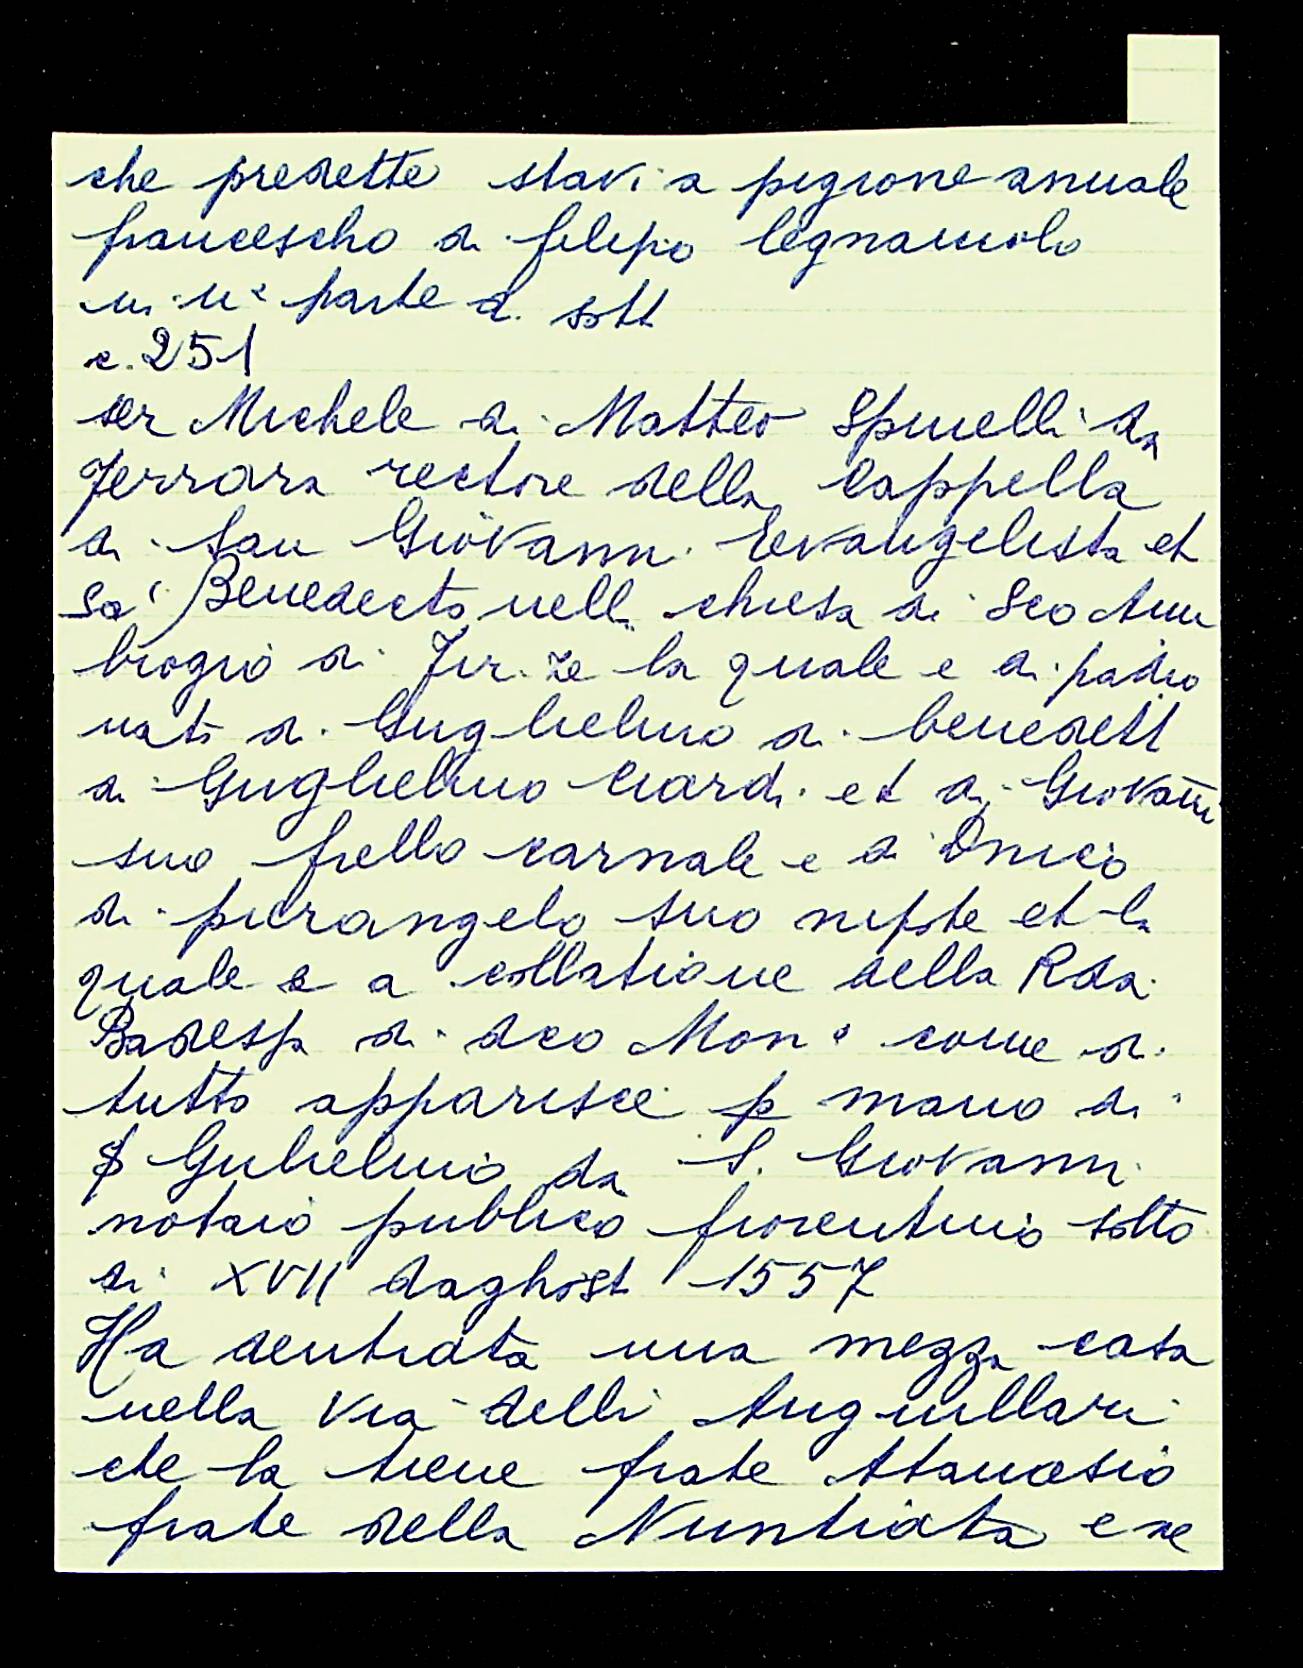 che predette stavi a pigione anuale
francescho di filipo legnaiuolo
in n.e parte di sott
c. 251
ser Michele di Matteo Spinelli da
Ferrara rectore della Cappella
di San Giovanni Evangelista et
Sã Benedecto nella chiesa di Sco Am
brogio di Fir.ze la quale e di padro
nato di Guglielmo di benedett
di Guglielmo Ciardi et di Giovanni
suo frello carnale e di Dnico
di pierangelo suo nipote et la
quale e a collatione della Rda
Badessa di dco Mon.o come di
tutto apparisce p mano di
S Gulielmo da S. Giovanni
notaio publico fiorentino sotto
di XVII daghost 1557
Ha dentrata una mezza casa
nella via delli Anguillari
che la tiene frate Atanasio
frate della Nuntiata e ne